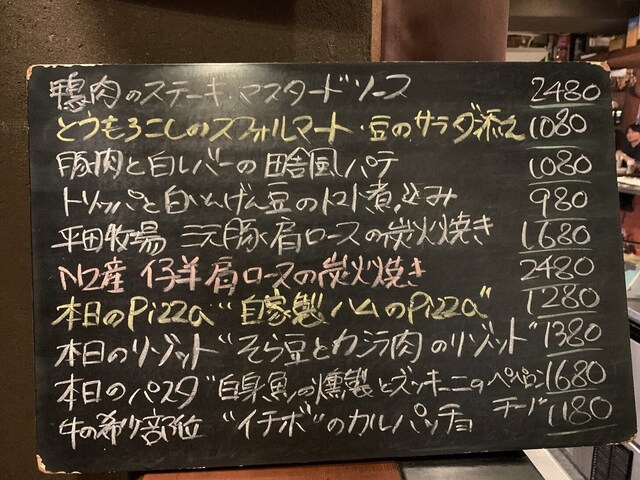 鴨肉のステーキ・マスタードソース 2480
とうもろこしのスフォルマート・豆のサラダ添え 1080
豚肉と白レバーの田舎風パテ 1080
トリッパと白いんげん豆のトマト煮込み 980
平田牧場 三元豚肩ロースの炭火焼き 1680
NZ産 仔羊肩ロースの炭火焼き 2480
本日のPizza "自家製ハムのPizza" 1280
本日のリゾット "そら豆とカシラ肉のリゾット" 1380
本日のパスタ "白身魚の燻製とズッキーニのペペロンチーノ" 1680
牛の希少部位 "イチボ"のカルパッチョ 1180